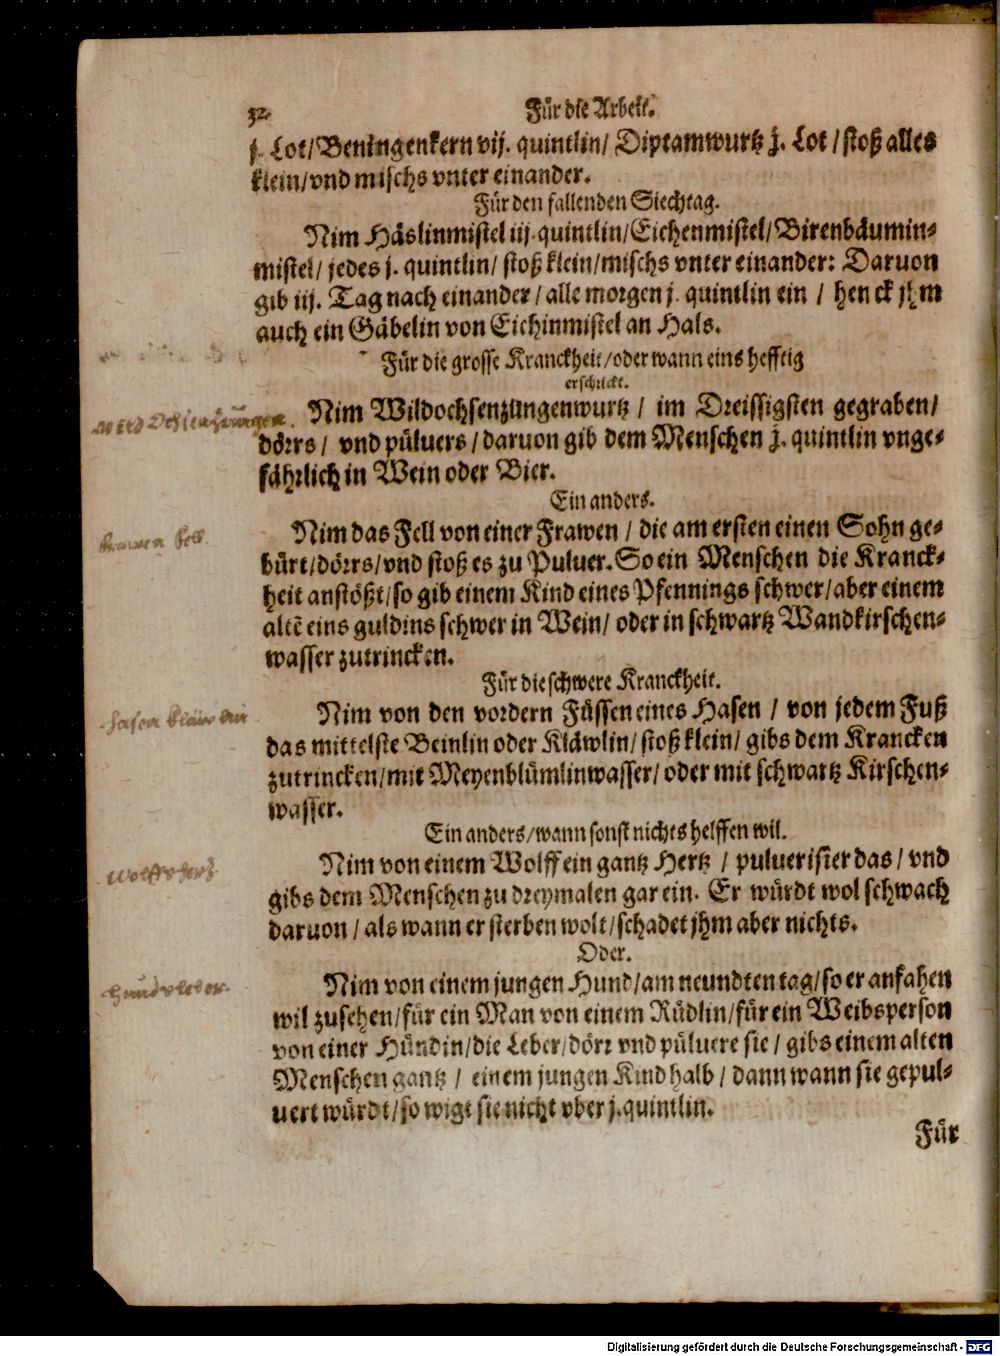 32 Für die Arbeit.
j. Lot/Beningenkern vij. quintlin/ Diptamwurtz j. Lot / stoß alles
klein/vnd mischs vnter einander.
Für den fallenden Siechtag.
Nim Häslinmistel iij. quintlin/Eichenmistel/Birenbäumin-
mistel/ jedes j. quintlin/ stoß klein/mischs vnter einander: Daruon
gib iij. Tag nach einander / alle morgen j. quintlin ein / henck jhm
auch ein Gäbelin von Eichinmistel an Hals.
Für die grosse Kranckheit/oder wann eins hefftig
erschrickt.
Nim Wildochsenzungenwurtz / im Dreissigsten gegraben/
dörrs / vnd pülvers / daruon gib dem Menschen j. quintlin vnge-
fährlich in Wein oder Bier.
Ein anders.
Nim das Fell von einer Frawen / die am ersten einen Sohn ge-
bürt/dörrs/vnd stoß es zu Puluer. So ein Menschen die Kranck-
heit anstößt/so gib einem Kind eines Pfennings schwer/aber einem
altē eins guldins schwer in Wein/ oder in schwartz Wandkirschen-
wasser zutrincken.
Für die schwere Kranckheit.
Nim von den vordern Füssen eines Hasen / von jedem Fuß
das mittelste Beinlin oder Kläwlin/stoß klein/ gibs dem Krancken
zutrincken/mit Meyenblümlinwasser/oder mit schwartz Kirschen-
wasser.
Ein anders/wann sonst nichts helffen wil.
Nim von einem Wolff ein gantz Hertz / puluerisier das / vnd
gibs dem Menschen zu dreymalen gar ein. Er würdt wol schwach
daruon / als wann er sterben wolt/schadet jhm aber nichts.
Oder.
Nim von einem jungen Hund/am neundten tag/so er anfahen
wil zusehen/für ein Man von einem Rüdlin/für ein Weibsperson
von einer Hündin/die Leber/dörr vnd püluere sie / gibs einem alten
Menschen gantz / einem jungen Kind halb / dann wann sie gepul-
uert würdt/so wigt sie nicht vber j. quintlin.
Für
frawen fell
hasen kläwlin
Wolffs hertz
Hundsleber
Digitalisierung gefördert durch die Deutsche Forschungsgemeinschaft - DFG